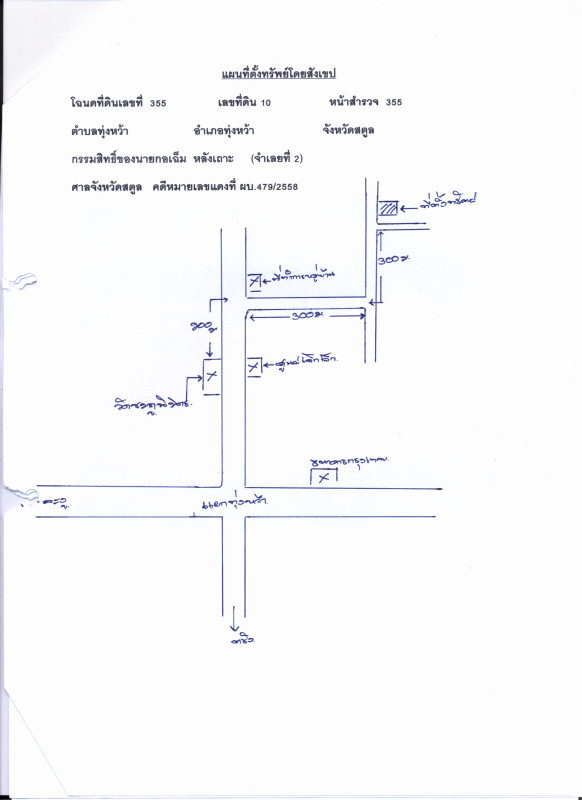 แผนที่ตั้งทรัพย์โดยสังเขป
โฉนดที่ดินเลขที่ 355 เลขที่ดิน 10 หน้าสำรวจ 355
ตำบลทุ่งหว้า อำเภอทุ่งหว้า จังหวัดสตูล
กรรมสิทธิ์ของนายกอเฉ็ม หลังเถาะ (จำเลยที่ 2)
ศาลจังหวัดสตูล คดีหมายเลขแดงที่ ผบ.479/2558
ที่ตั้งทรัพย์
300 ม.
ที่ทำการผู้ใหญ่บ้าน
300 ม
200 ม
ศูนย์เด็กเล็ก
ธนาคารกรุงเทพ
ละงู
แยกทุ่งหว้า
ตรัง